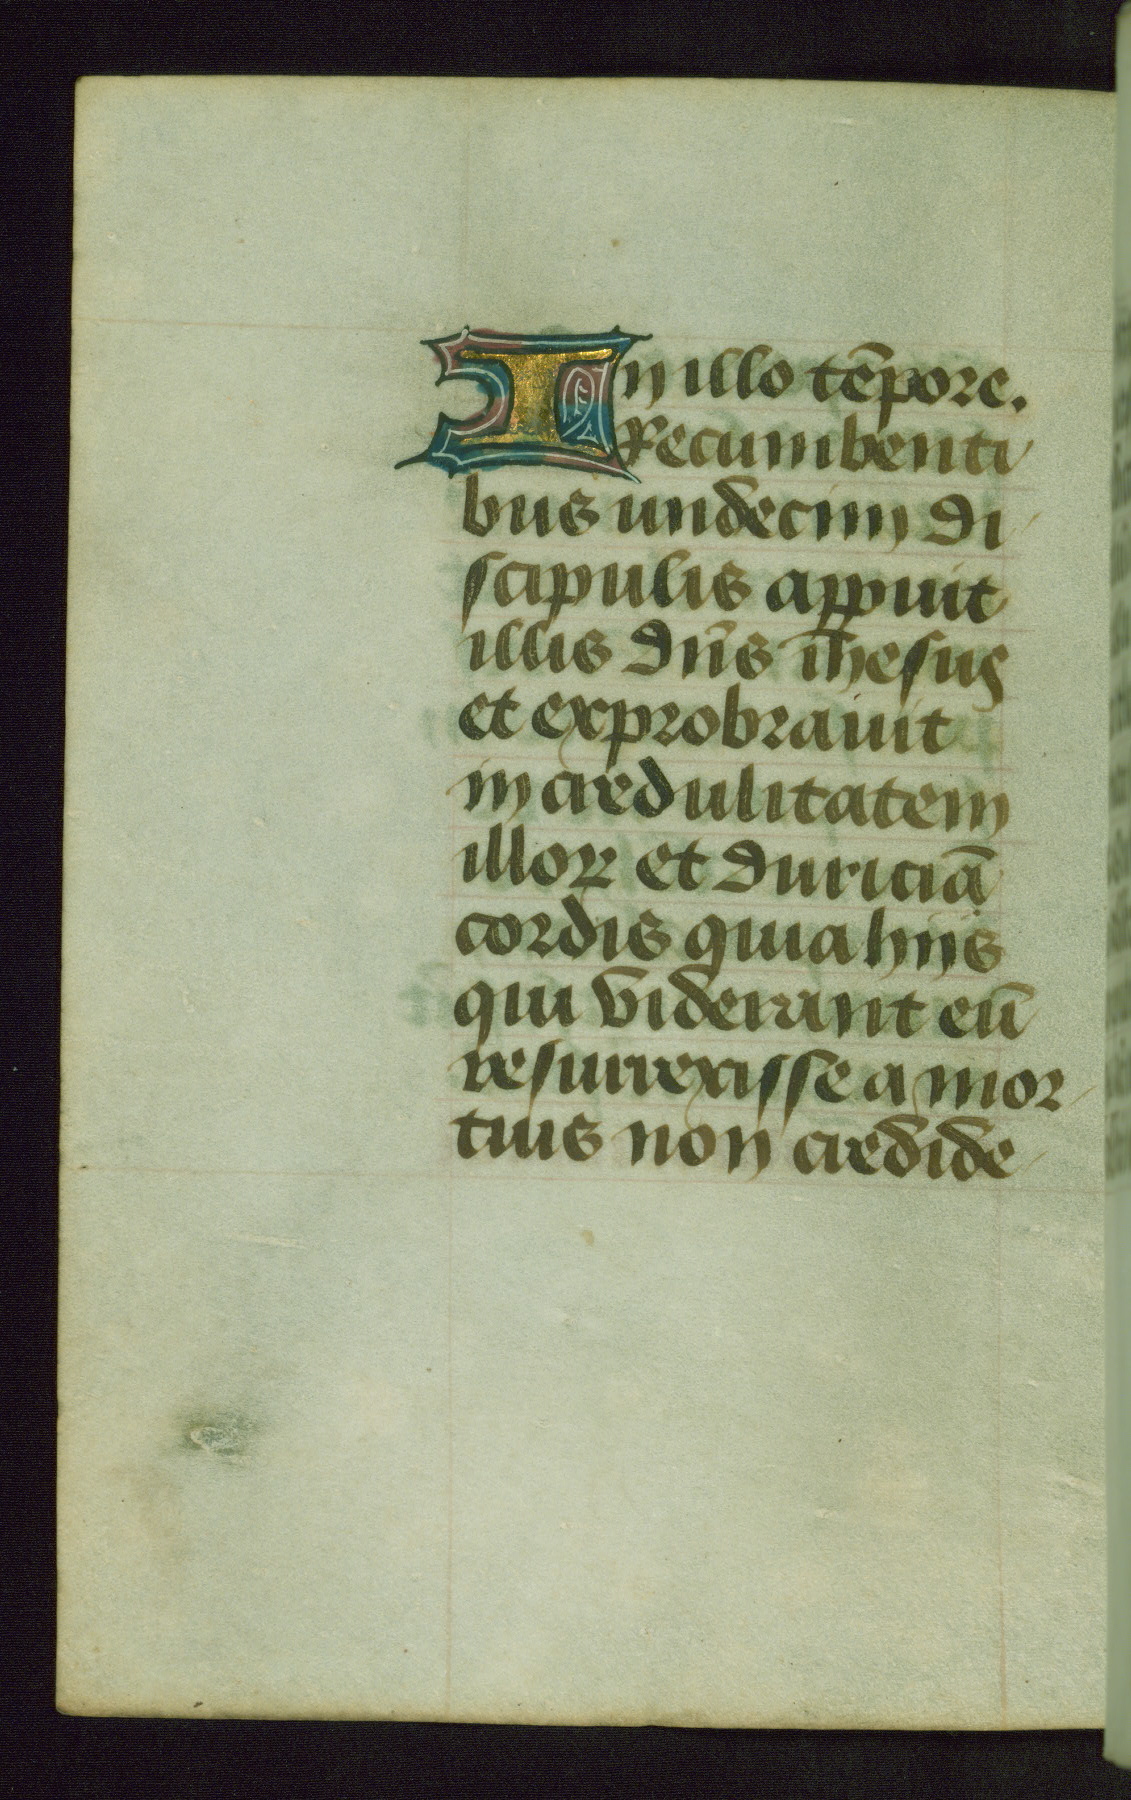 In illo te̅pore.
Recumbenti
bus undecim di
scipulis apꝑuit
illis dn̅s ih̅esus
et exprobrauit
in credulitatem
illoꝝ et duricia̅
cordis quia hijs
qui viderant eu̅
resurrexisse a mor
tuis non credide